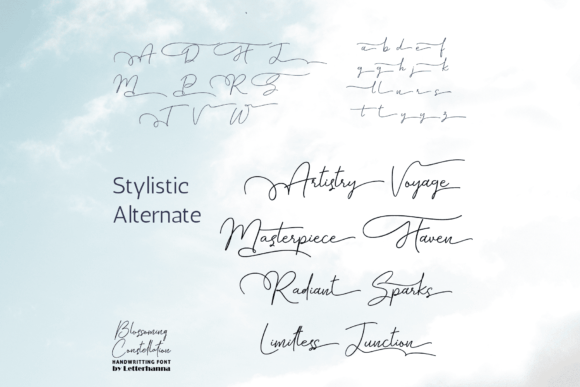 A D H I
M P R S
T V W
a b d e f
g g h j k
ll u r s
t t y y z
Stylistic
Alternate
Artistry Voyage
Masterpiece Haven
Radiant Sparks
Limitless Junction
Blossoming
Constellation
HANDWRITTING FONT
by Letterhanna